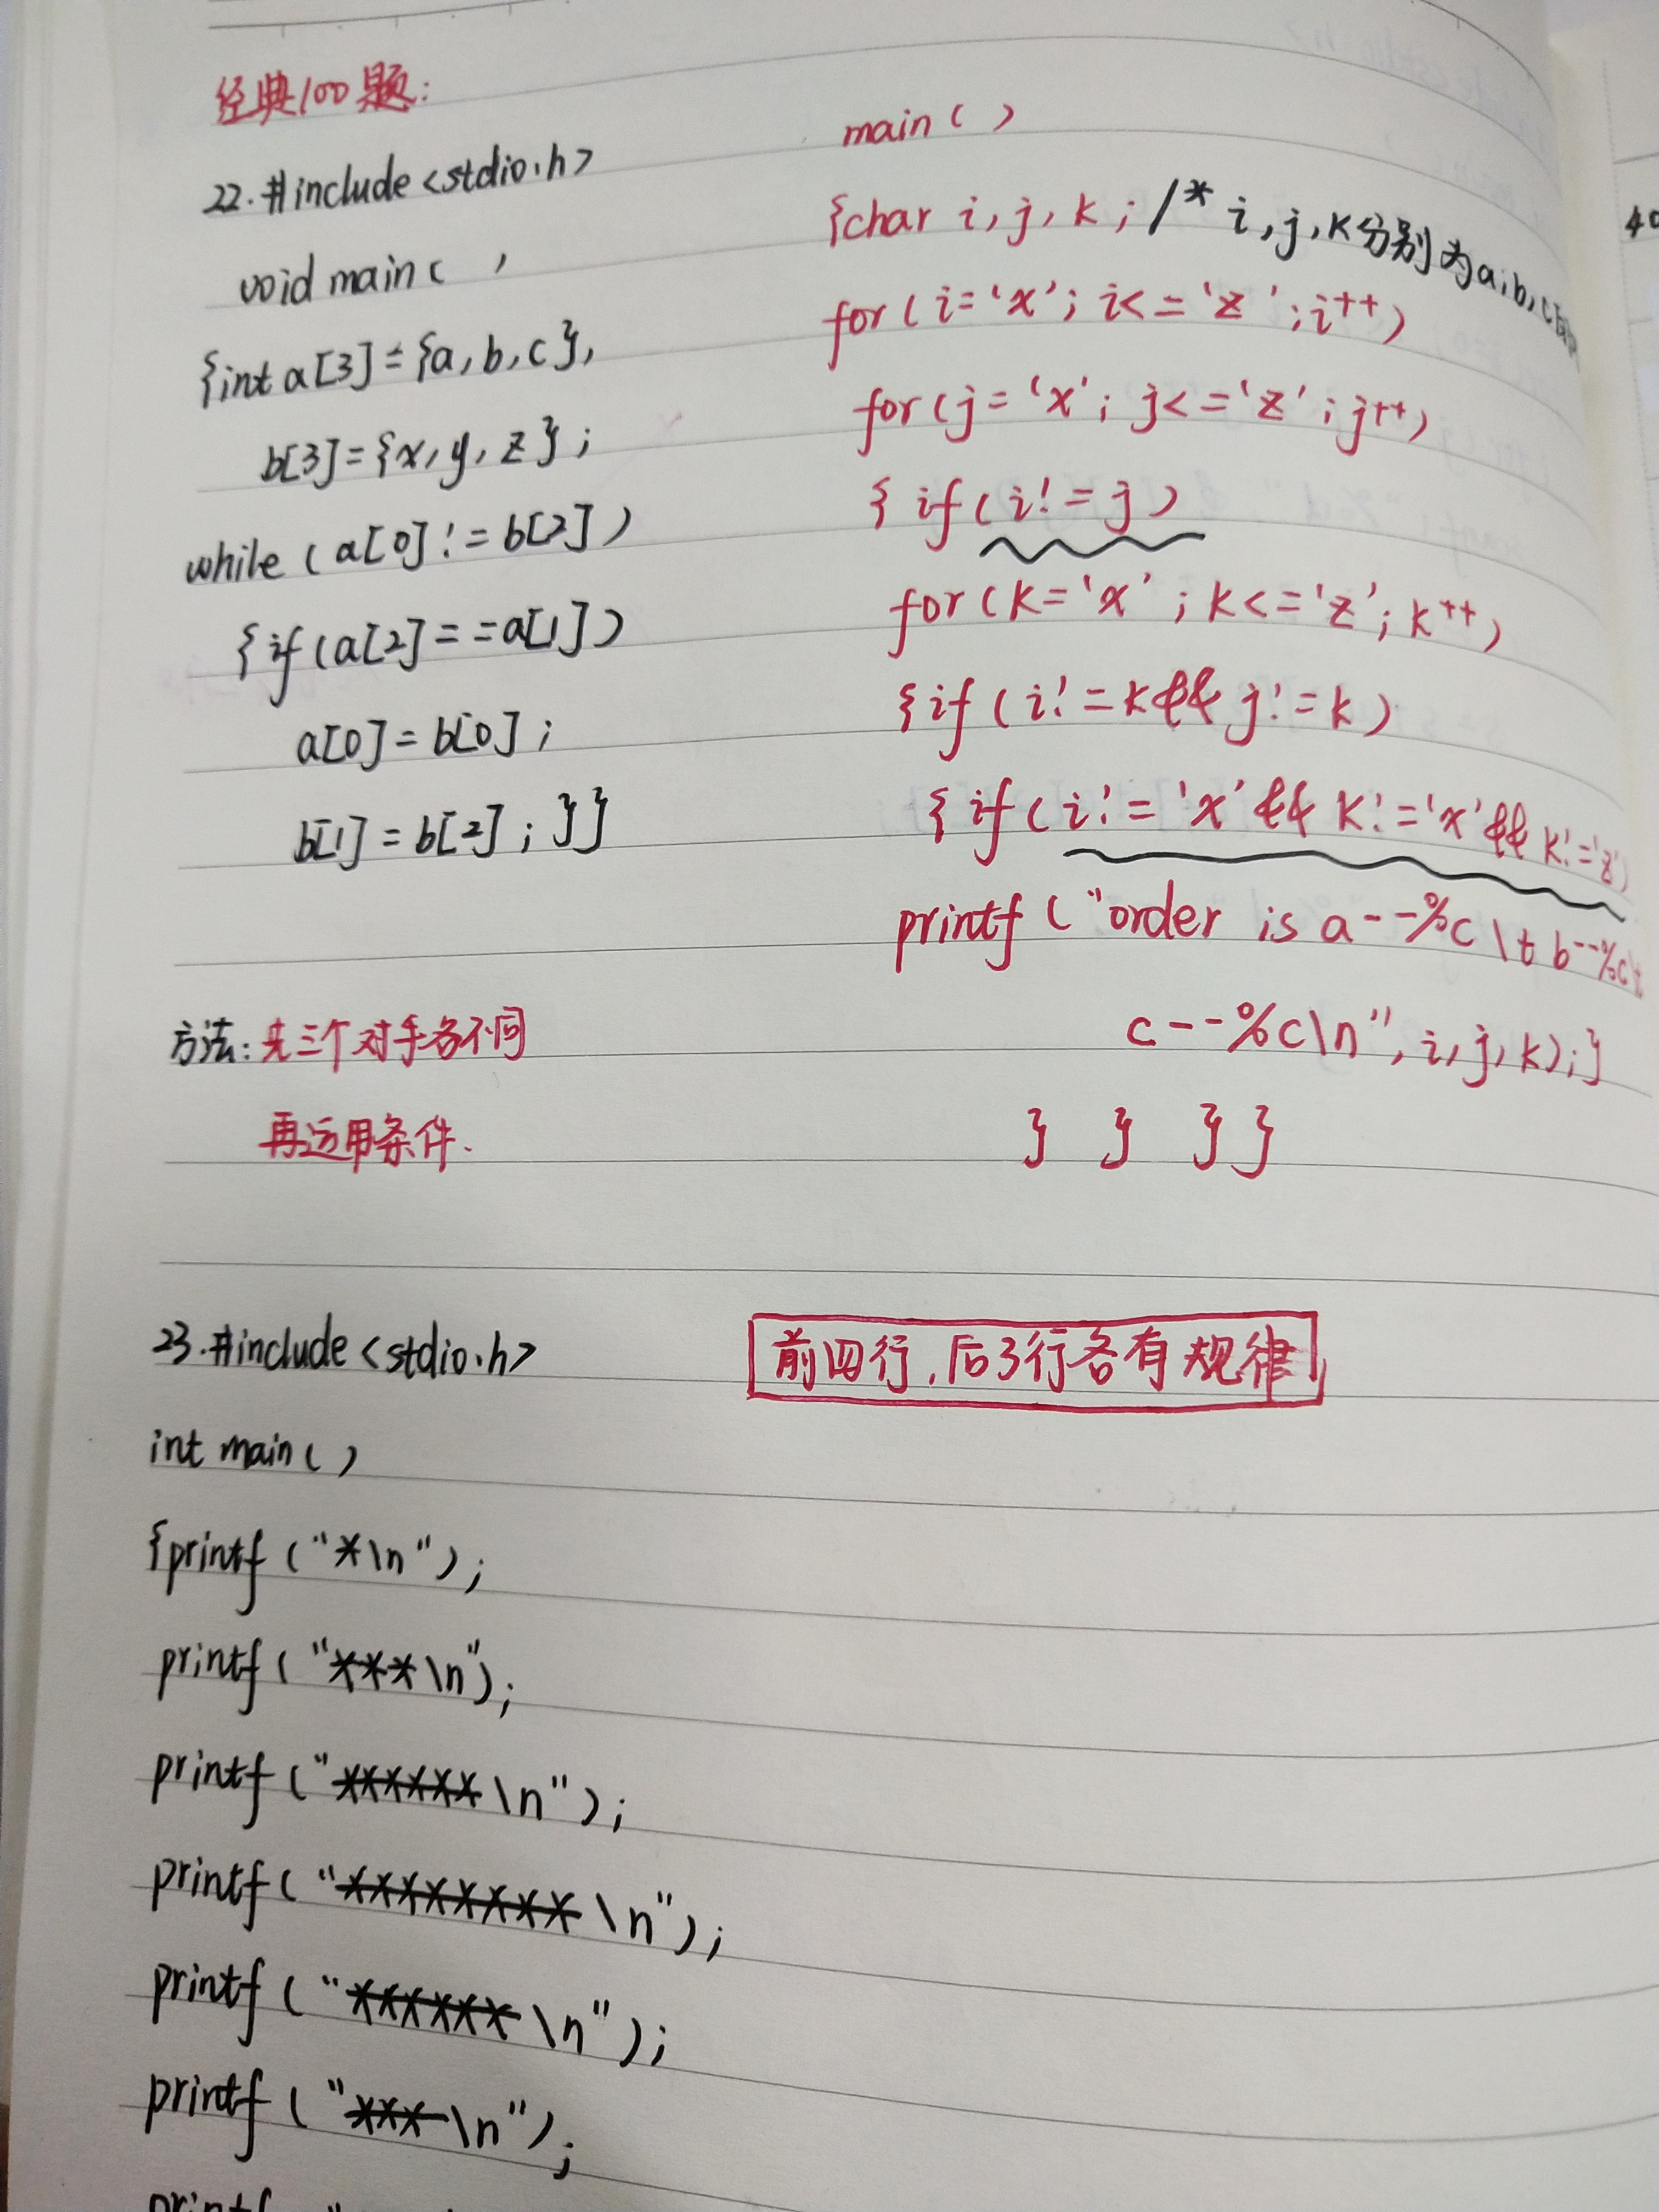 经典100题:
22. #include<stdio.h>
void main( )
{int a[3]={a,b,c},
b[3]={x,y,z};
while (a[0]!=b[2])
{if(a[2]==a[1])
a[0]=b[0];
b[1]=b[2];}}
方法:先三个对手各不同
再运用条件.
main( )
{char i,j,k;/* i,j,k分别为a,b,c
for(i='x';i<='z';i++)
for(j='x';j<='z';j++)
{if(i!=j)
for(k='x';k<='z';k++)
{if(i!=k&&j!=k)
{if(i!='x'&&k!='x'&&k!='z')
printf("order is a--%c\t b--%c\t
c--%c\n",i,j,k);}
} } } }
23. #include<stdio.h>
前四行,后3行各有规律
int main( )
{printf("*\n");
printf("***\n");
printf("******\n");
printf("********\n");
printf("******\n");
printf("***\n");
printf("
40